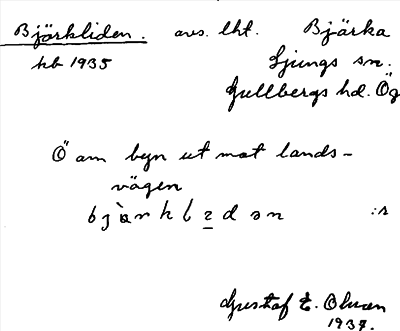 Bjärkliden. avs. lht. Bjärka
hb 1935 Ljungs sn.
Gullbergs hd. Ög
Ö am byn ut mot lands-
vägen
:s
Gustaf E.
1937.